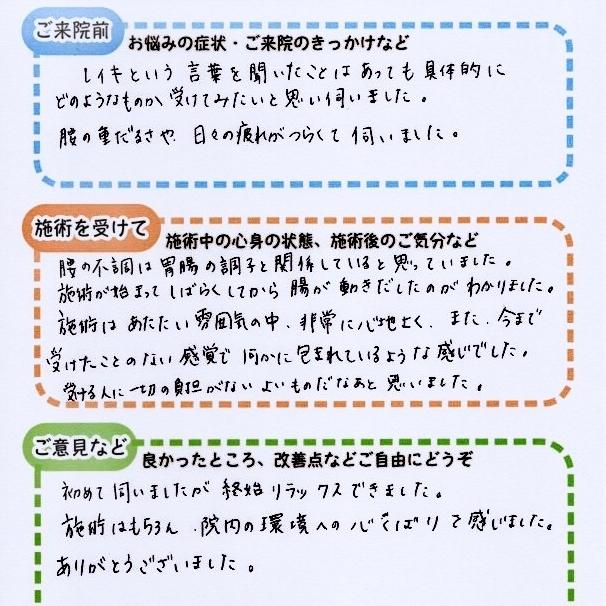 ご来院前
お悩みの症状・ご来院のきっかけなど
レイキという言葉を聞いたことはあっても具体的に
どのようなものか受けてみたいと思い伺いました。
腰の重だるさや、日々の疲れがつらくて伺いました。
施術を受けて
施術中の心身の状態、施術後のご気分など
腰の不調は胃腸の調子と関係していると思っていました。
施術が始まってしばらくしてから腸が動きだしたのがわかりました。
施術はあたたい雰囲気の中、非常に心地よく、また、今まで
受けたことのない感覚で何かに包まれているような感じでした。
受ける人に一切の負担がないよいものだなあと思いました。
ご意見など
良かったところ、改善点などご自由にどうぞ
初めて伺いましたが終始リラックスできました。
施術はもちろん、院内の環境への心くばりを感じました。
ありがとうございました。